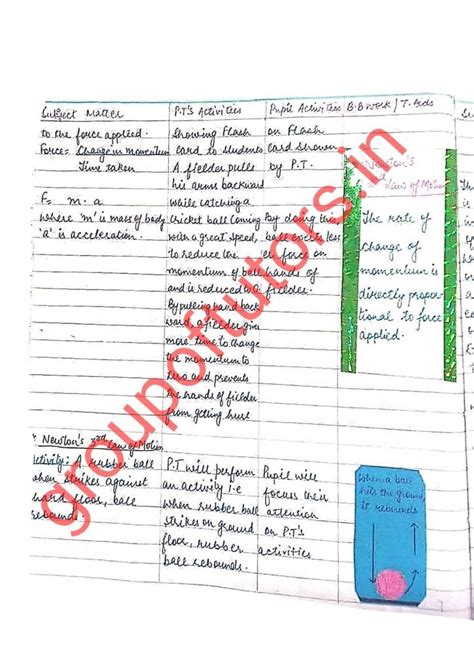 Subject Matter
to the force applied.
Force = Change in momentum
Time taken
F = m . a
where 'm' is mass of body
'a' is acceleration.
* Newton's 3rd Law of Motion
Activity: A rubber ball
when strikes against
hard floor, ball
rebounds.
P.T's Activities
Showing Flash
card to students
A fielder pulls
his arms backward
while catching a
Cricket ball coming
with a great speed,
to reduce the
momentum of ball
and is reduced to 0.
By pulling hand back
ward a fielder gives
more time to change
the momentum to
zero and prevents
the hands of fielder
from getting hurt
P.T will perform
an activity i.e
when rubber ball
strikes on ground
floor, rubber
ball rebounds.
Pupil Activities
on Flash
card shown
by P.T.
By doing this,
ball exerts less
er force on
hands of
fielder.
Pupil will
focus their
attention
on P.T's
activities
B.B Work / T. Aids
Newton's
2nd
Law of Motion
The rate of
change of
momentum is
directly propor-
tional to force
applied.
When a ball
hits the ground,
it rebounds
groupoftutors.in